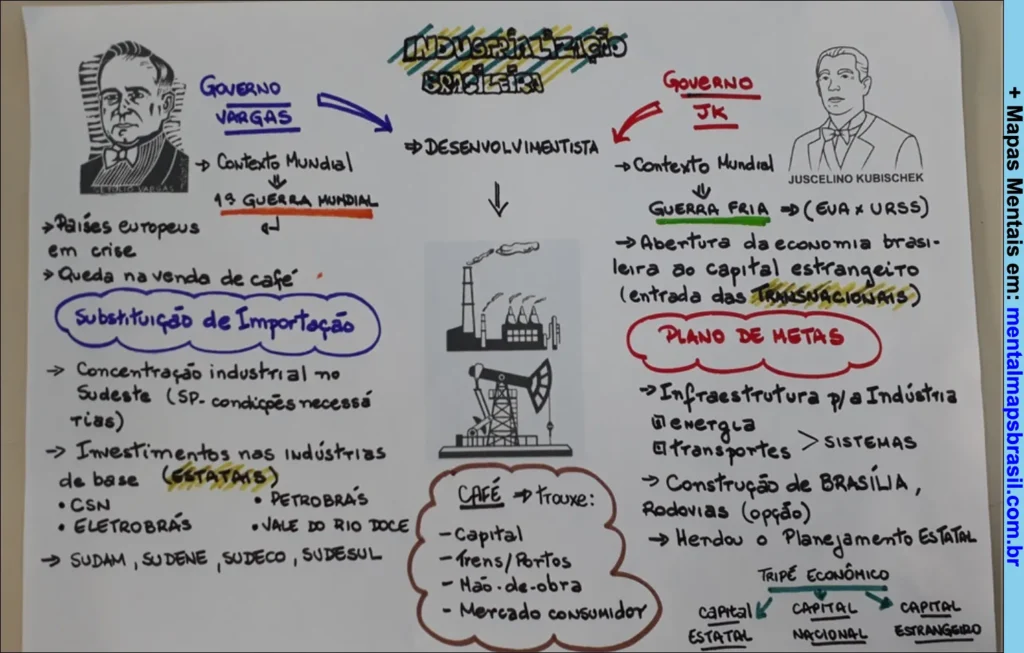 INDUSTRIALIZAÇÃO
BRASILEIRA
GETÚLIO VARGAS
GOVERNO
VARGAS
→ Contexto Mundial
1ª GUERRA MUNDIAL
→ Países europeus
em crise
→ Queda na venda de café
Substituição de Importação
→ Concentração industrial no
Sudeste (SP- condições necessá
rias)
→ Investimentos nas indústrias
de base (ESTATAIS)
• CSN
• PETROBRÁS
• ELETROBRÁS
• VALE DO RIO DOCE
→ SUDAM, SUDENE, SUDECO, SUDESUL
⇒ DESENVOLVIMENTISTA
CAFÉ ⇒ trouxe:
- Capital
- Trens/Portos
- Mão-de-obra
- Mercado consumidor
GOVERNO
JK
JUSCELINO KUBISCHEK
→ Contexto Mundial
GUERRA FRIA ⇒ (EUA x URSS)
→ Abertura da economia brasi-
leira ao capital estrangeiro
(entrada das TRANSNACIONAIS)
PLANO DE METAS
→ Infraestrutura p/a Indústria
energia
transportes > SISTEMAS
→ Construção de BRASÍLIA,
Rodovias (opção)
→ Herdou o Planejamento ESTATAL
TRIPÉ ECONÔMICO
Capital
ESTATAL
CAPITAL
NACIONAL
CAPITAL
ESTRANGEIRO
+ Mapas Mentais em: mentalmapsbrasil.com.br